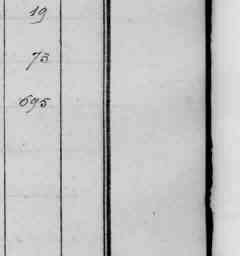 19
73
695